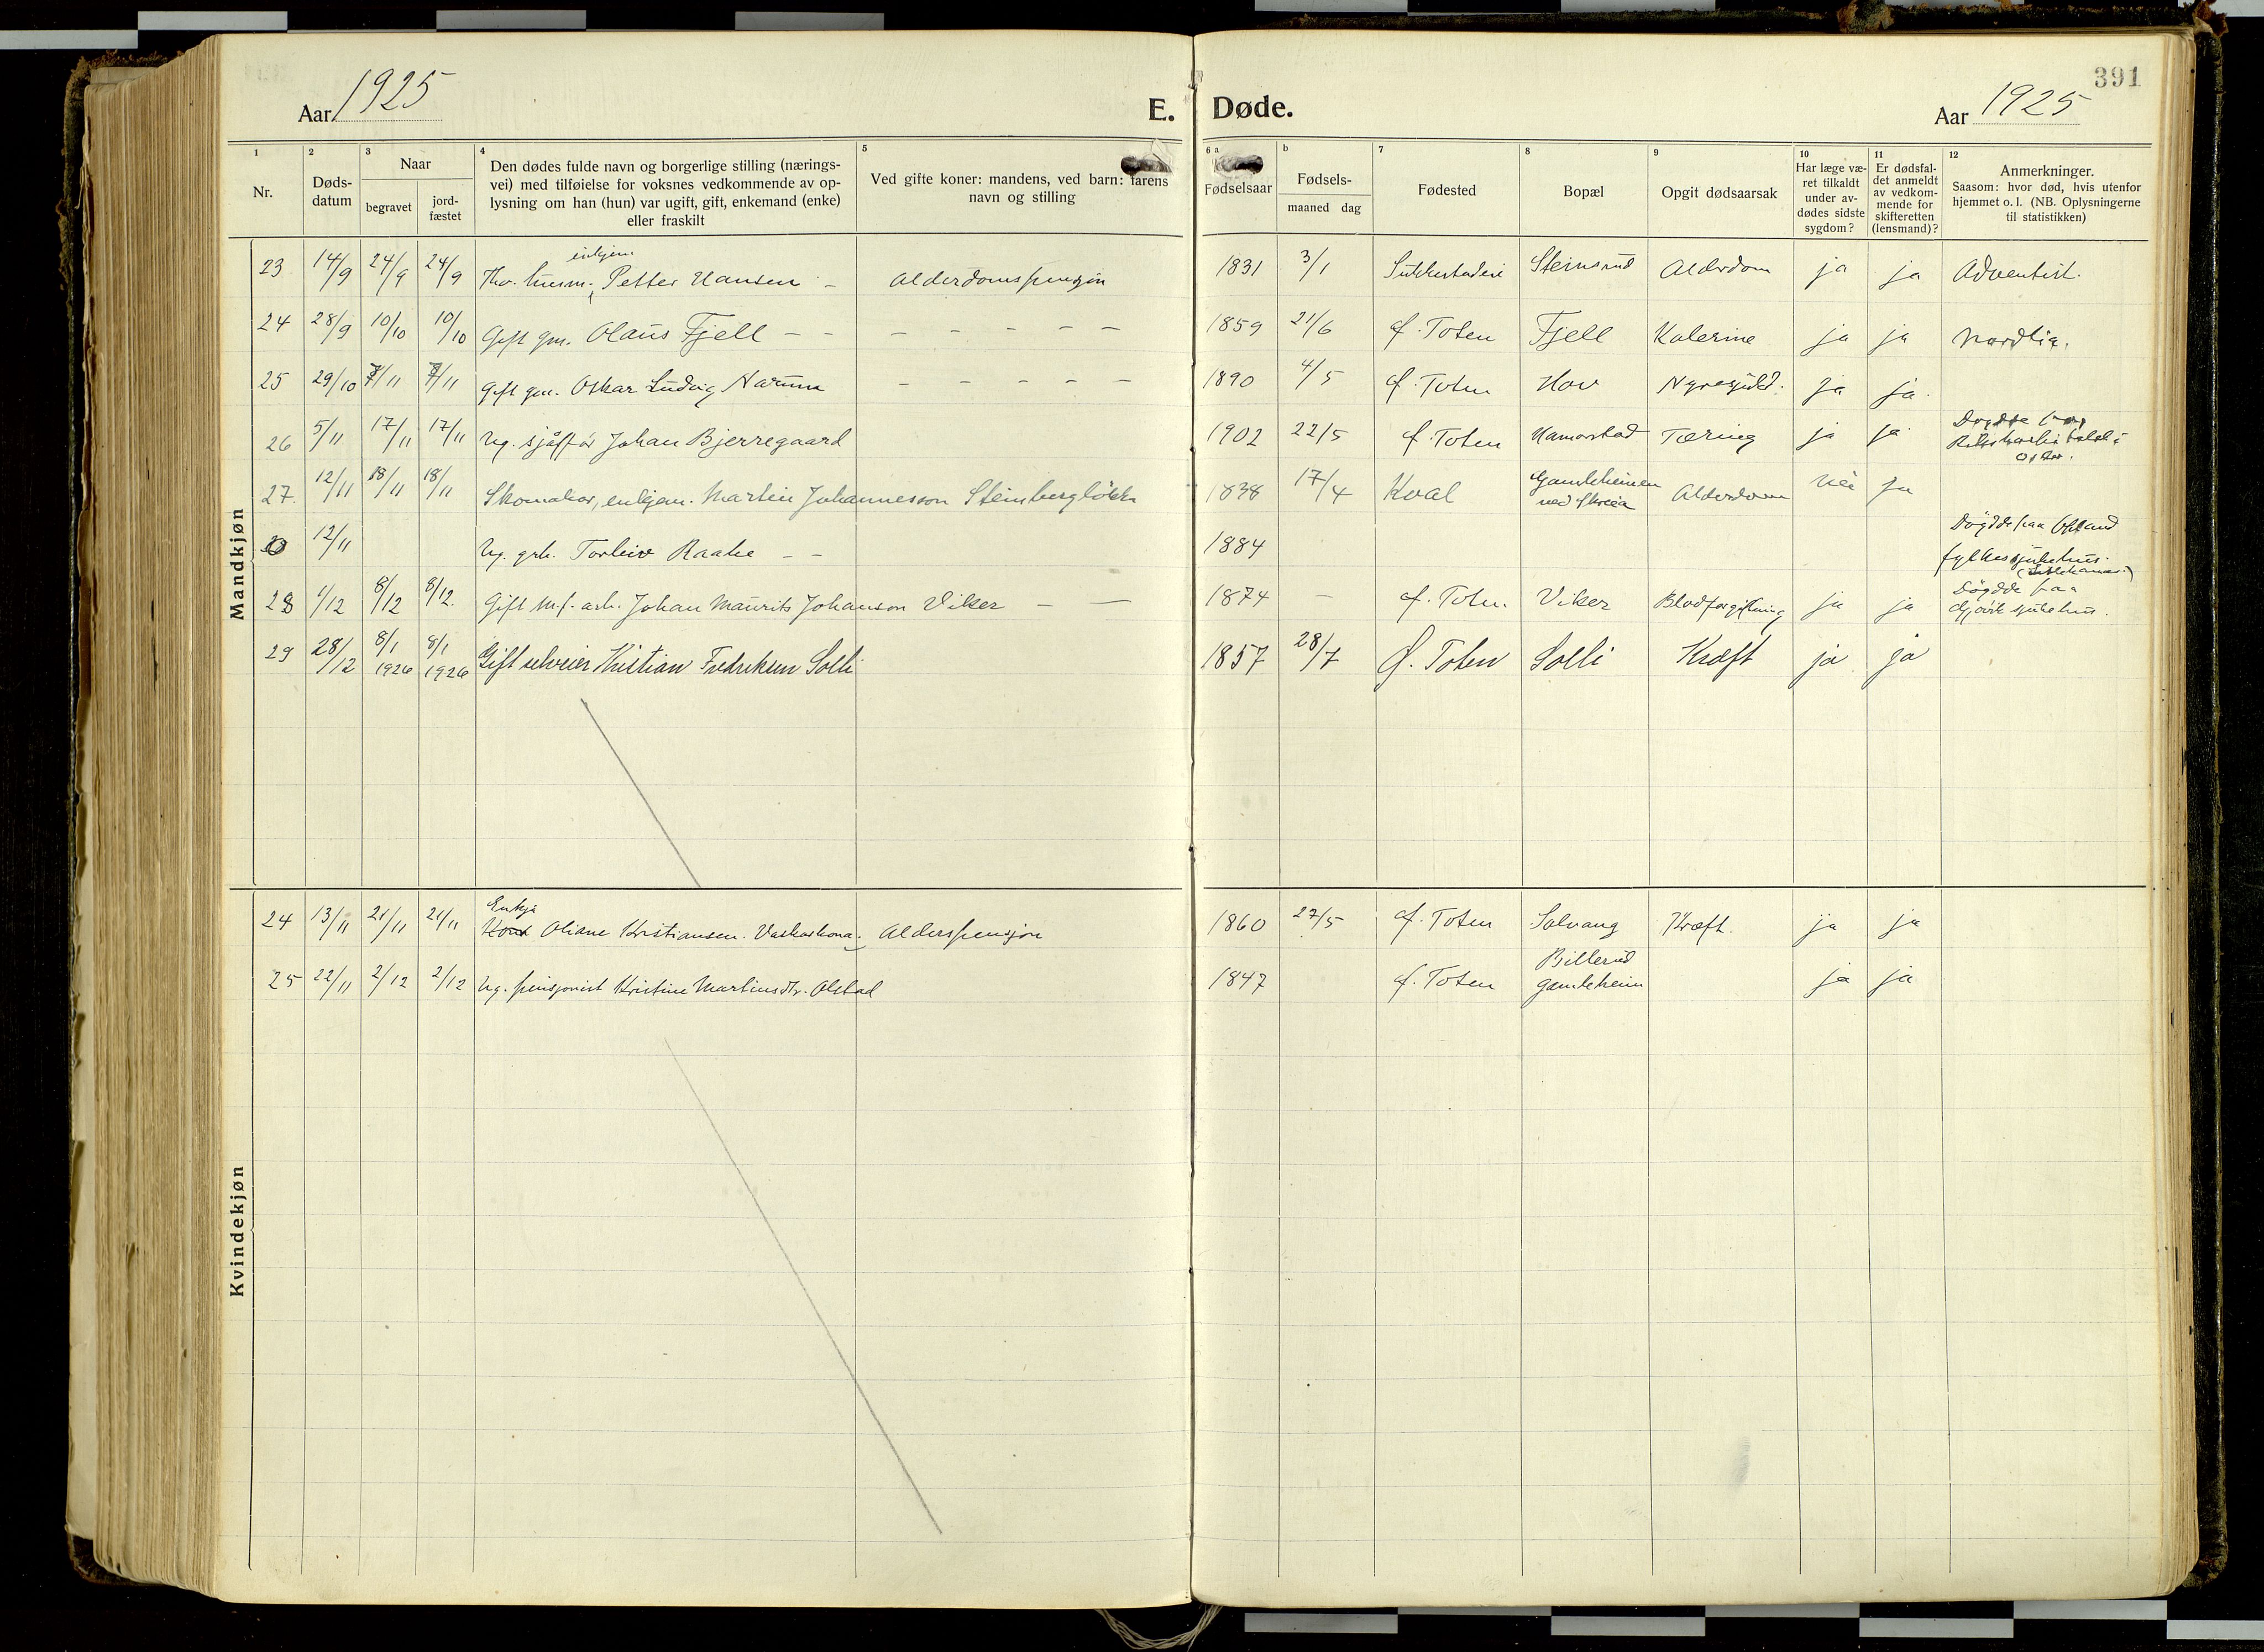 391
Aar 1925
E. Døde.
Aar 1925
1 Nr.
2 Døds-datum
3 Naar
begravet
jord-fæstet
4 Den dødes fulde navn og borgerlige stilling (nærings-
vei) med tilføielse for voksnes vedkommende av op-
lysning om han (hun) var ugift, gift, enkemand (enke)
eller fraskilt
5 Ved gifte koner: mandens, ved barn: farens
navn og stilling
6 a Fødselsaar
b Fødsels-
maaned dag
7 Fødested
8 Bopæl
9 Opgit dødsaarsak
10 Har læge væ-
ret tilkaldt
under av-
dødes sidste
sygdom?
11 Er dødsfal-
det anmeldt
av vedkom-
mende for
skifteretten
(lensmand)?
12 Anmerkninger.
Saasom: hvor død, hvis utenfor
hjemmet o. l. (NB. Oplysningerne
til statistikken)
Mandkjøn
23 14/9 24/9 24/9 husm. enkjem. Petter Hansen – Alderdomspensjon 1831 3/1 Steinsrud Alderdom ja ja Adventist.
24 28/9 10/10 10/10 Gift gm. Olaus Fjell – – – – – – – 1859 21/6 Ø. Toten Fjell Kolerine ja ja Nordlia.
25 29/10 7/11 7/11 Gift gm. Oskar Ludvig Narum – – – – 1890 4/5 Ø. Toten Hov ja ja.
26 5/11 17/11 17/11 Ug. sjåffør Johan Bjerregaard 1902 22/5 Ø. Toten Hamarstad Tæring ja ja Døgdde paa Rikshospitalet i Oslo.
27. 12/11 18/11 18/11 Skomakar, enkjem. Martin Johannesson Steinbergløkka 1838 17/4 Kval Gamleheimen ved Skreia Alderdom Nei Ja
12/11 Ug. grk. Torleiv Raabe – – 1884 Døgdde paa Opland fylkessjukehus.
28 1/12 8/12 8/12. Gift m.f. arb. Johan Maurits Johanson Viker – – 1874 – Ø. Toten. Viker Blodforgiftning ja ja Døgdde paa Gjøvik sjukehus.
29 28/12 8/1 1926 8/1 1926 Gift selveier Kristian Fredriksen Solli 1857 28/7 Ø. Toten Solli Kræft ja ja
Kvindekjøn
24 13/11 21/11 21/11 Enkja Kona Oliane Kristiansen. Vaskarkona. Alderspensjon 1860 27/5 Ø. Toten Solvang Kræft. ja ja
25 22/11 2/12 2/12 Ug. pensjonist Kristine Martinsdtr. Olstad 1847 Ø. Toten Billerud gamleheim ja ja